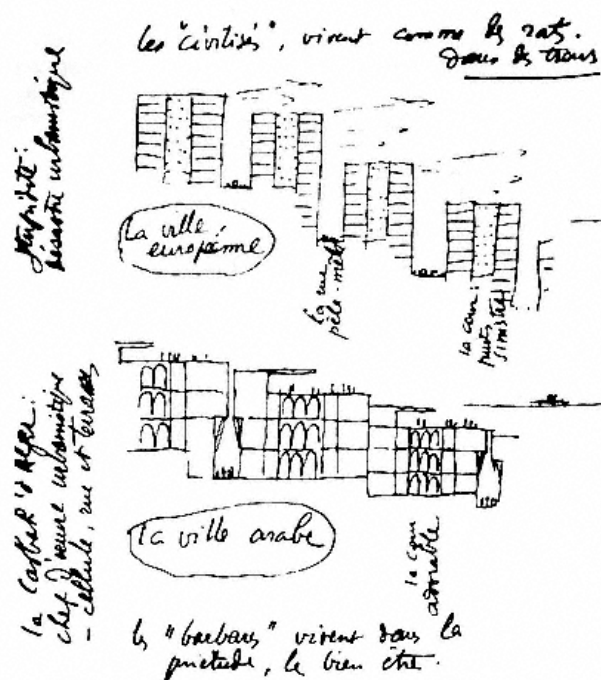 les "civilisés", vivent comme des rats.
dans des trous
Stupidité:
désastre urbanistique
La ville
européenne
la rue
pêle mêle
la cour:
puits
sinistre
la Casbah d'Alger:
chef d'œuvre urbanistique
– cellule, rue et terrasses
la ville arabe
la cour
adorable
les "barbares" vivent dans la
, le bien être.